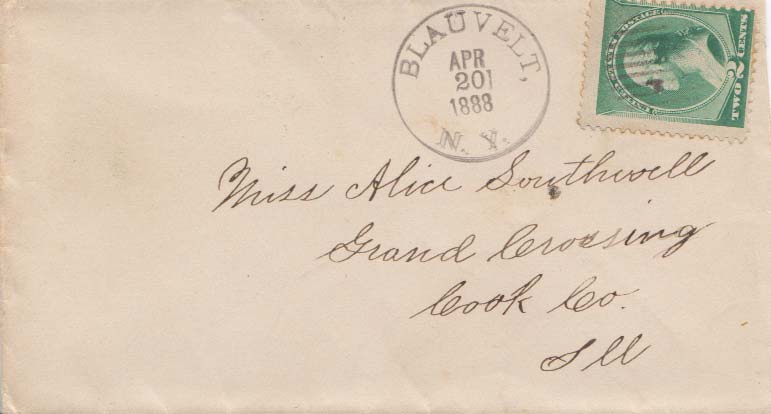 BLAUVELT,
APR
201
1888
N. Y.
TWO 2 CENTS
Miss Alice Southwell
Grand Crossing
Cook Co.
Ill